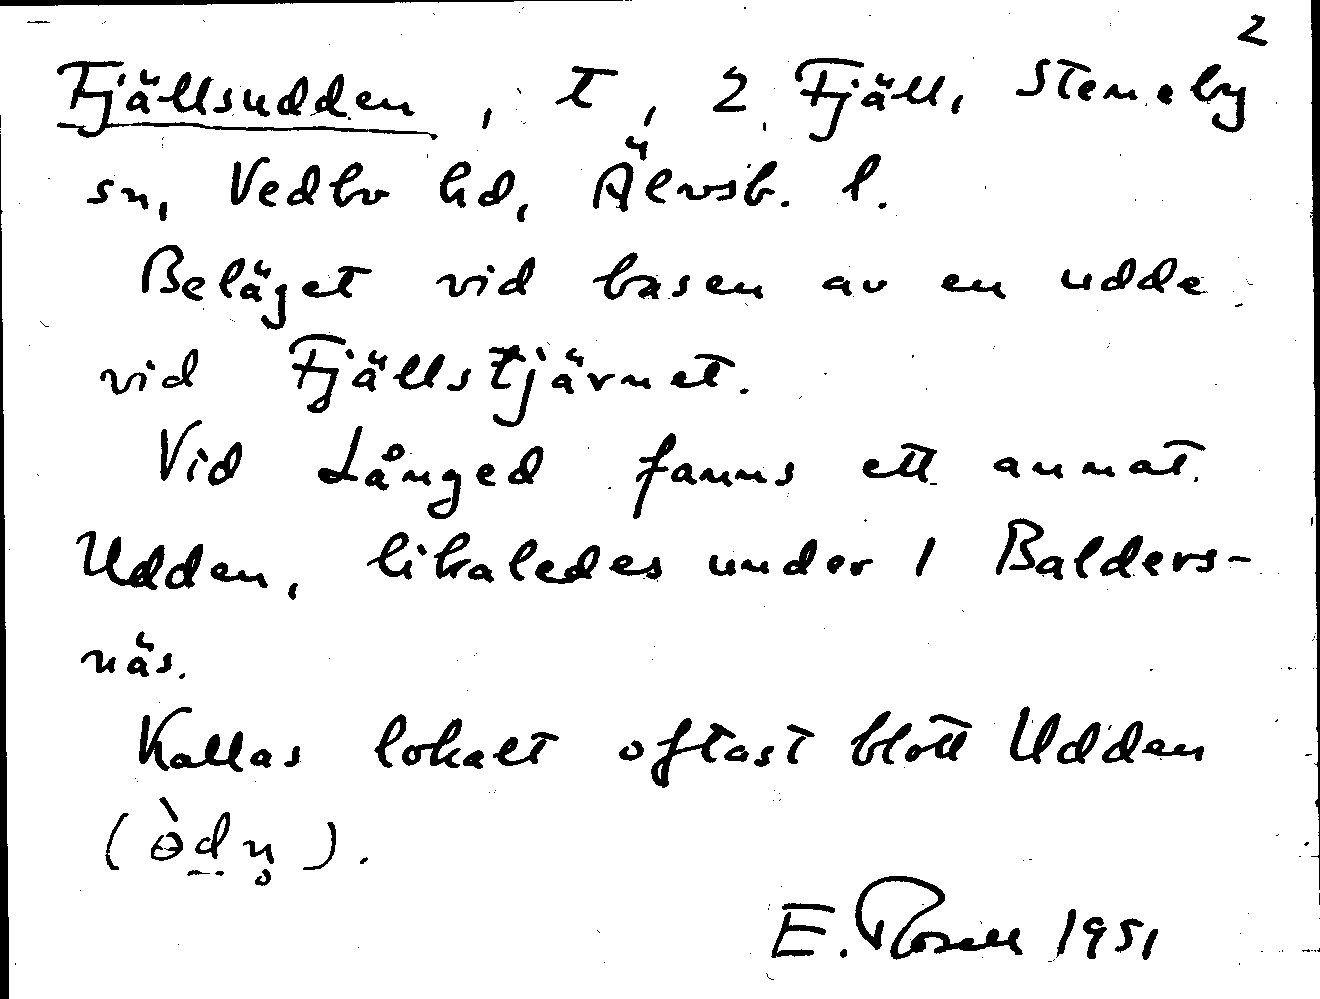 2
Fjällsudden, t, 2 Fjäll, Steneby
sn, Vedbo hd, Älvsb. l.
Beläget vid basen av en udde
vid Fjällstjärnet.
Vid Långed fanns ett annat
Udden, likaledes under 1 Balders-
näs.
Kallas lokalt oftast blott Udden
(ɵ̀dn̥).
E. Rosell 1951